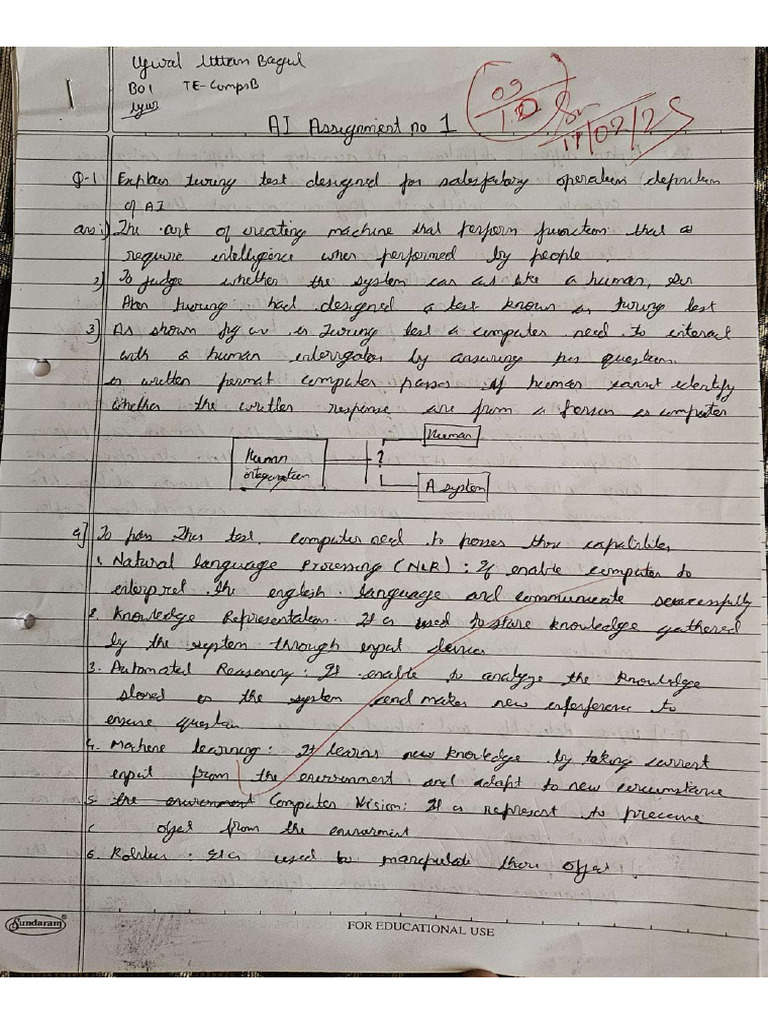 Ujwal Uttam Bagul
B01 TE-CompsB
1
09/10
11/02/25
AI Assignment no 1
Q-1 Explain turing test designed for satisfactory operation defination
of AI
ans:1) The art of creating machine that perform function that
require intelligence when performed by people.
2) To judge whether the system can act like a human, Sir
Alan turing had designed a test known as turing test
3] As shown fig in Turing test a computer need to interact
with a human interrogator by answring his question
in written format computer passes if human cannot identify
whether the written response are from a person or computer
Human
Human
?
A system
4] To pass this test, computer need to posses these capabilities
1. Natural language Processing (NLR) : If enable computer to
interpret the english language and communicate successfully
2. Knowledge Representation. It is used to store knowledge gathered
by the system through input device
3. Automated Reasoning: It enable to analyze the knowledge
stored in the system and makes new inferference to
question
4. Machine learning: It learns new knowledge by taking current
input from the environment and adapt to new circumstance
5. the environment Computer Vision: It is represent to preceive
objet from the enviroment
6. It is used to manipulate there objet.
Sundaram
FOR EDUCATIONAL USE